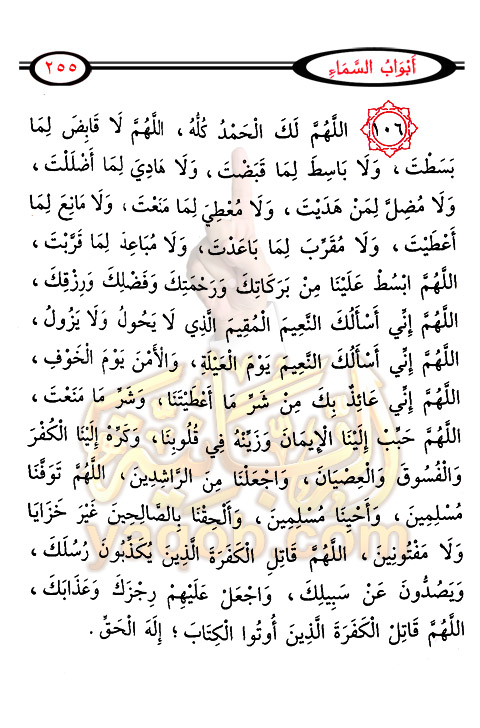 أَبْوَابُ السَّمَاءِ
٢٥٥
١٠٦ اللَّهُمَّ لَكَ الْحَمْدُ كُلُّهُ، اللَّهُمَّ لَا قَابِضَ لِمَا
بَسَطْتَ، وَلَا بَاسِطَ لِمَا قَبَضْتَ، وَلَا هَادِيَ لِمَا أَضْلَلْتَ،
وَلَا مُضِلَّ لِمَنْ هَدَيْتَ، وَلَا مُعْطِيَ لِمَا مَنَعْتَ، وَلَا مَانِعَ لِمَا
أَعْطَيْتَ، وَلَا مُقَرِّبَ لِمَا بَاعَدْتَ، وَلَا مُبَاعِدَ لِمَا قَرَّبْتَ،
اللَّهُمَّ ابْسُطْ عَلَيْنَا مِنْ بَرَكَاتِكَ وَرَحْمَتِكَ وَفَضْلِكَ وَرِزْقِكَ،
اللَّهُمَّ إِنِّي أَسْأَلُكَ النَّعِيمَ الْمُقِيمَ الَّذِي لَا يَحُولُ وَلَا يَزُولُ،
اللَّهُمَّ إِنِّي أَسْأَلُكَ النَّعِيمَ يَوْمَ الْعَيْلَةِ، وَالْأَمْنَ يَوْمَ الْخَوْفِ،
اللَّهُمَّ إِنِّي عَائِذٌ بِكَ مِنْ شَرِّ مَا أَعْطَيْتَنَا، وَشَرِّ مَا مَنَعْتَ،
اللَّهُمَّ حَبِّبْ إِلَيْنَا الْإِيمَانَ وَزَيِّنْهُ فِي قُلُوبِنَا، وَكَرِّهْ إِلَيْنَا الْكُفْرَ
وَالْفُسُوقَ وَالْعِصْيَانَ، وَاجْعَلْنَا مِنَ الرَّاشِدِينَ، اللَّهُمَّ تَوَفَّنَا
مُسْلِمِينَ، وَأَحْيِنَا مُسْلِمِينَ، وَأَلْحِقْنَا بِالصَّالِحِينَ غَيْرَ خَزَايَا
وَلَا مَفْتُونِينَ، اللَّهُمَّ قَاتِلِ الْكَفَرَةَ الَّذِينَ يُكَذِّبُونَ رُسُلَكَ،
وَيَصُدُّونَ عَنْ سَبِيلِكَ، وَاجْعَلْ عَلَيْهِمْ رِجْزَكَ وَعَذَابَكَ،
اللَّهُمَّ قَاتِلْ الْكَفَرَةَ الَّذِينَ أُوتُوا الْكِتَابَ؛ إِلَهَ الْحَقِّ.